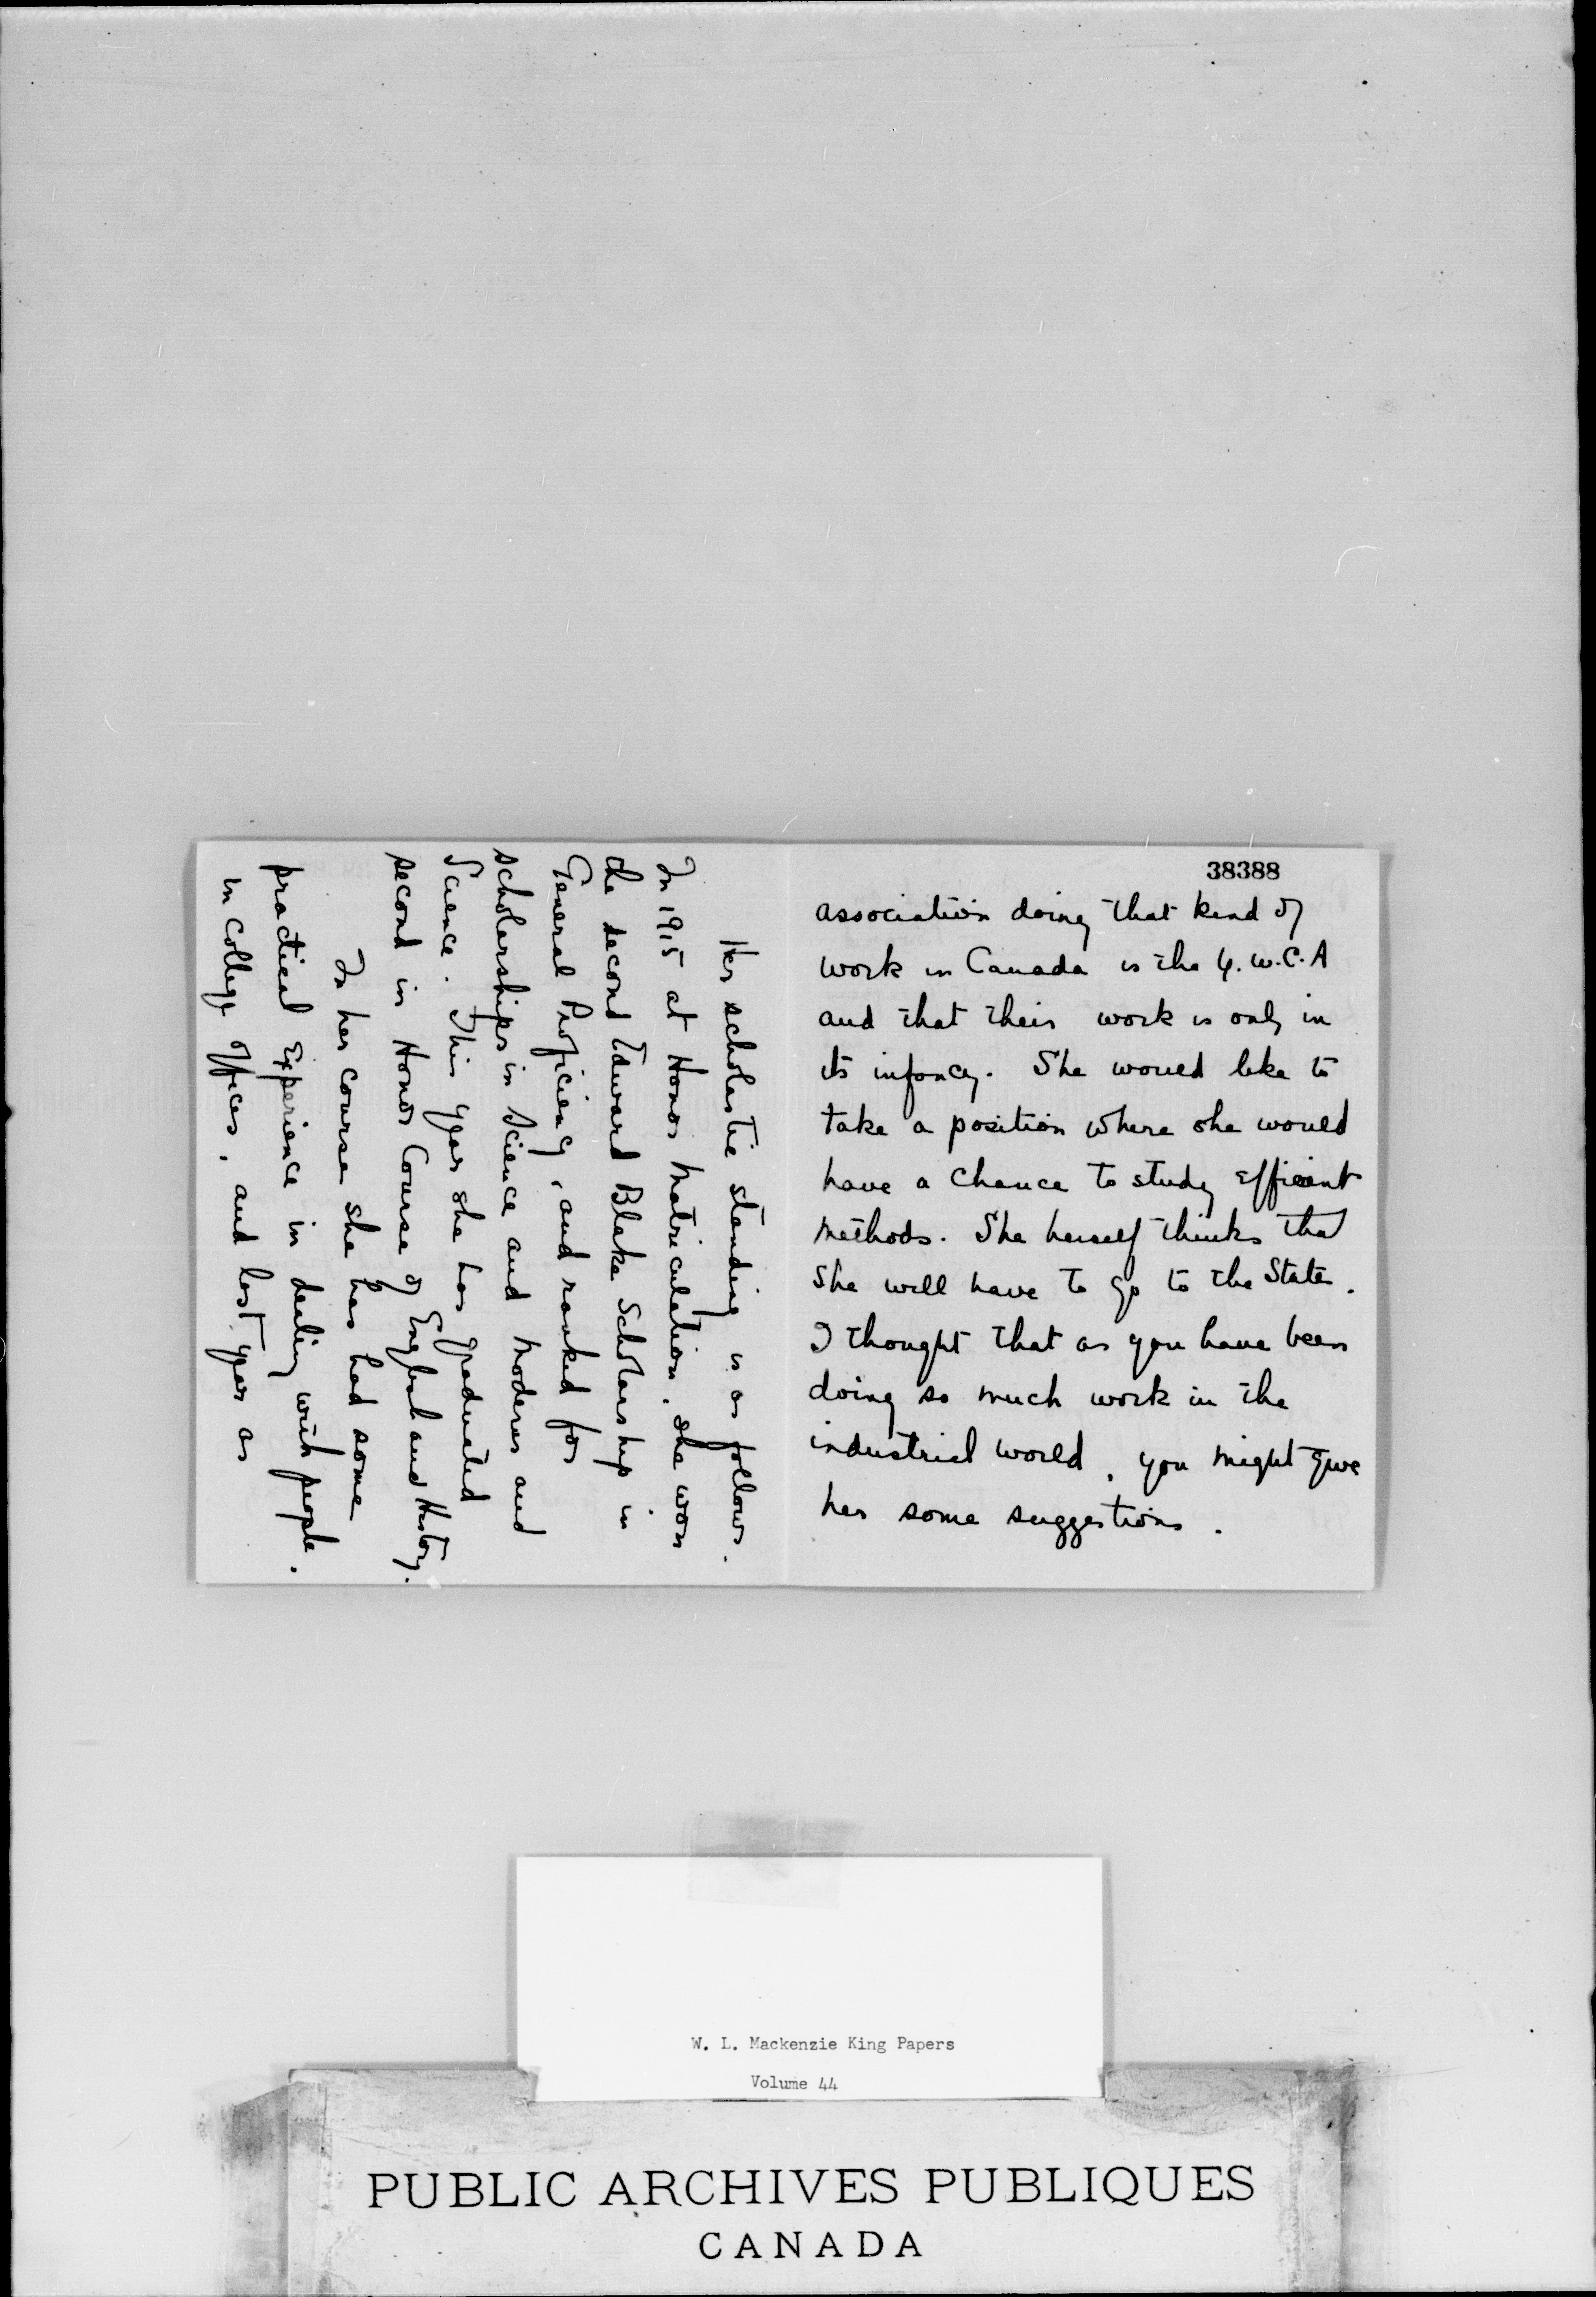 38388
association doing that kind of
work in Canada is the Y.W.C.A
and that their work is only in
its infancy. She would like to
take a position where she would
have a chance to study efficient
methods. She herself thinks that
she will have to go to the States.
I thought that as you have been
doing so much work in the
industrial world, you might give
her some suggestions.
Her scholastic standing is as follows.
In 1915 at Honor Matriculation, she won
the second Edward Blake Scholarship in
General Proficiency, and ranked for
scholarships in Science and Moderns and
Science. This year she has graduated
second in Honor Course of English and History.
In her course she has had some
practical experience in dealing with people.
in College offices, and last year as
W. L. Mackenzie King Papers
Volume 44
PUBLIC ARCHIVES PUBLIQUES
CANADA